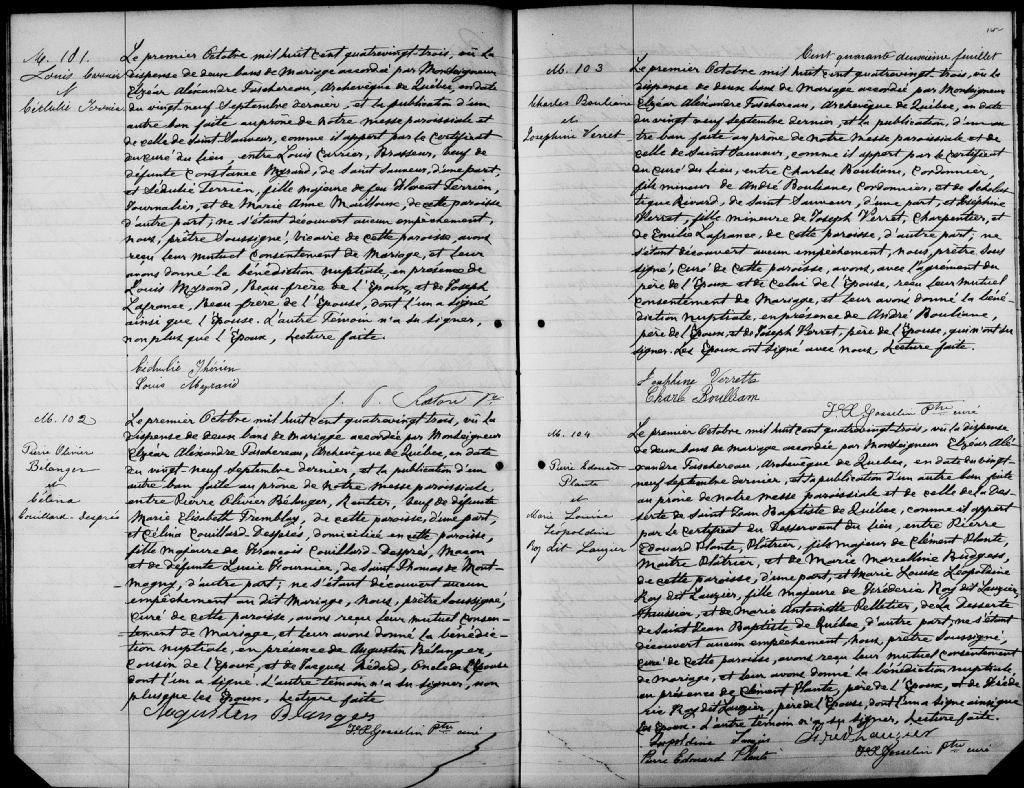 M. 101.
Louis Carrier
&
Cédulie Terrien
Le premier Octobre mil huit cent quatrevingt-trois, vû la
dispense de deux bans de Mariage accordée par Monseigneur
Elzéar Alexandre Taschereau, Archevêque de Québec, en date
du vingt-neuf Septembre dernier, et la publication d'un
autre ban faite au prône de notre messe paroissiale et
de celle de Saint Sauveur, comme il appert par le certificat
du curé du lieu, entre Louis Carrier, Brasseur, veuf de
défunte Constance Myrand, de Saint Sauveur, d'une part,
et Sédulie Terrien, fille majeure de feu Flovent Terrien,
Journalier, et de Marie Anne Mailloux, de cette paroisse
d'autre part; ne s'étant découvert aucun empêchement,
nous, prêtre Soussigné, vicaire de cette paroisse, avons
reçu leur mutuel consentement de Mariage, et leur
avons donné la bénédiction nuptiale, en présence de
Louis Myrand, Beau-frère de l'Epoux, et de Joseph
Lafrance, Beau-frère de l'Epouse, dont l'un a signé
ainsi que l'Epouse. L'autre Témoin n'a su signer,
non plus que l'Epoux, Lecture faite.
Cédulie Thérien
Louis Myrand
M. 102
Pierre Olivier
Bélanger
et
Célina
Couillard-Després
Le premier Octobre mil huit cent quatrevingt trois, vû la
dispense de deux bans de Mariage accordée par Monseigneur
Elzéar Alexandre Taschereau, Archevêque de Québec, en date
du vingt-neuf Septembre dernier, et la publication d'un
autre ban faite au prône de notre messe paroissiale,
entre Pierre Olivier Bélanger, Rentier, veuf de défunte
Marie Elisabeth Tremblay, de cette paroisse, d'une part,
et Célina Couillard Després, domiciliée en cette paroisse,
fille majeure de François Couillard-Després, Maçon
et de défunte Lucie Fournier, de Saint Thomas de Mont-
magny, d'autre part; ne s'étant découvert aucun
empêchement au dit Mariage, Nous, prêtre soussigné,
curé de cette paroisse, avons reçu leur mutuel consen-
tement de Mariage, et leur avons donné la bénédic-
tion nuptiale, en présence de Augustin Bélanger,
cousin de l'Epoux, et de Jacques Bédard, Oncle de l'Epouse
dont l'un a signé. L'autre témoin n'a su signer, non
plus que les Epoux, Lecture faite
Augusten Blanger
F.X. Gosselin Ptre curé
Cent quarante deuxième feuillet
M. 103
Charles Bouliane
et
Joséphine Verret
Le premier Octobre mil huit cent quatrevingt-trois, vû la
dispense de deux bans de Mariage accordée par Monseigneur
Elzéar Alexandre Taschereau, Archevêque de Québec, en date
du vingt neuf Septembre dernier, et la publication, d'un au-
tre ban faite au prône de notre messe paroissiale et de
celle de Saint Sauveur, comme il appert par le certificat
du curé du lieu, entre Charles Bouliane, Cordonnier,
fils mineur de André Bouliane, Cordonnier, et de Scholas-
tique Rivard, de Saint Sauveur, d'une part, et Joséphine
Verret, fille mineure de Joseph Verret, Charpentier, et
de Emilie Lafrance, de cette paroisse, d'autre part, ne
s'étant découvert aucun empêchement, nous, prêtre sous-
signé, curé de cette paroisse, avons, avec l'agrément du
père de l'Epoux et de celui de l'Epouse, reçu leur mutuel
consentement de Mariage, et leur avons donné la béné-
diction nuptiale, en présence de André Bouliane,
père de l'Epoux, et de Joseph Verret, père de l'Epouse, qui n'ont su
signer. Les Epoux ont signé avec nous, Lecture faite.
Josephine Verrette
Charle Boulliam
F.X. Gosselin Ptre curé
M. 104
Pierre Edouard
Plante
et
Marie Louise
Léopoldine
Roy dit Lauzier
Le premier Octobre mil huit cent quatrevingt trois, vû la dispense
de deux bans de Mariage accordée par Monseigneur Elzéar Alé-
xandre Taschereau, Archevêque de Québec, en date du vingt-
neuf septembre dernier, et la publication d'un autre ban faite
au prône de notre messe paroissiale et de celle de la Des-
serte de Saint Jean Baptiste de Québec, comme il appert
par le certificat du Desservant du lieu, entre Pierre
Edouard Plante, Plâtrier, fils majeur de Clément Plante,
Maître Plâtrier, et de Marie Marcelline
de cette paroisse, d'une part, et Marie Louise Léopoldine
Roy dit Lauzier, fille majeure de Fréderic Roy dit Lauzier,
Huissier, et de Marie Antoinette Pelletier, de la Desserte
de Saint Jean Baptiste de Québec, d'autre part, ne s'étant
découvert aucun empêchement, nous, prêtre soussigné,
curé de cette paroisse, avons reçu leur mutuel consentement
de mariage, et leur avons donné la bénédiction nuptiale,
en présence de Clément Plante, père de l'Epoux, et de Fréde-
ric Roy dit Lauzier, père de l'Epouse, dont l'un a signé ainsi que
les Epoux. L'autre témoin n'a su signer, Lecture faite.
Léopoldine Lauzier
Fred Lauzier
Pierre Edouard Plante
F.X. Gosselin Ptre curé